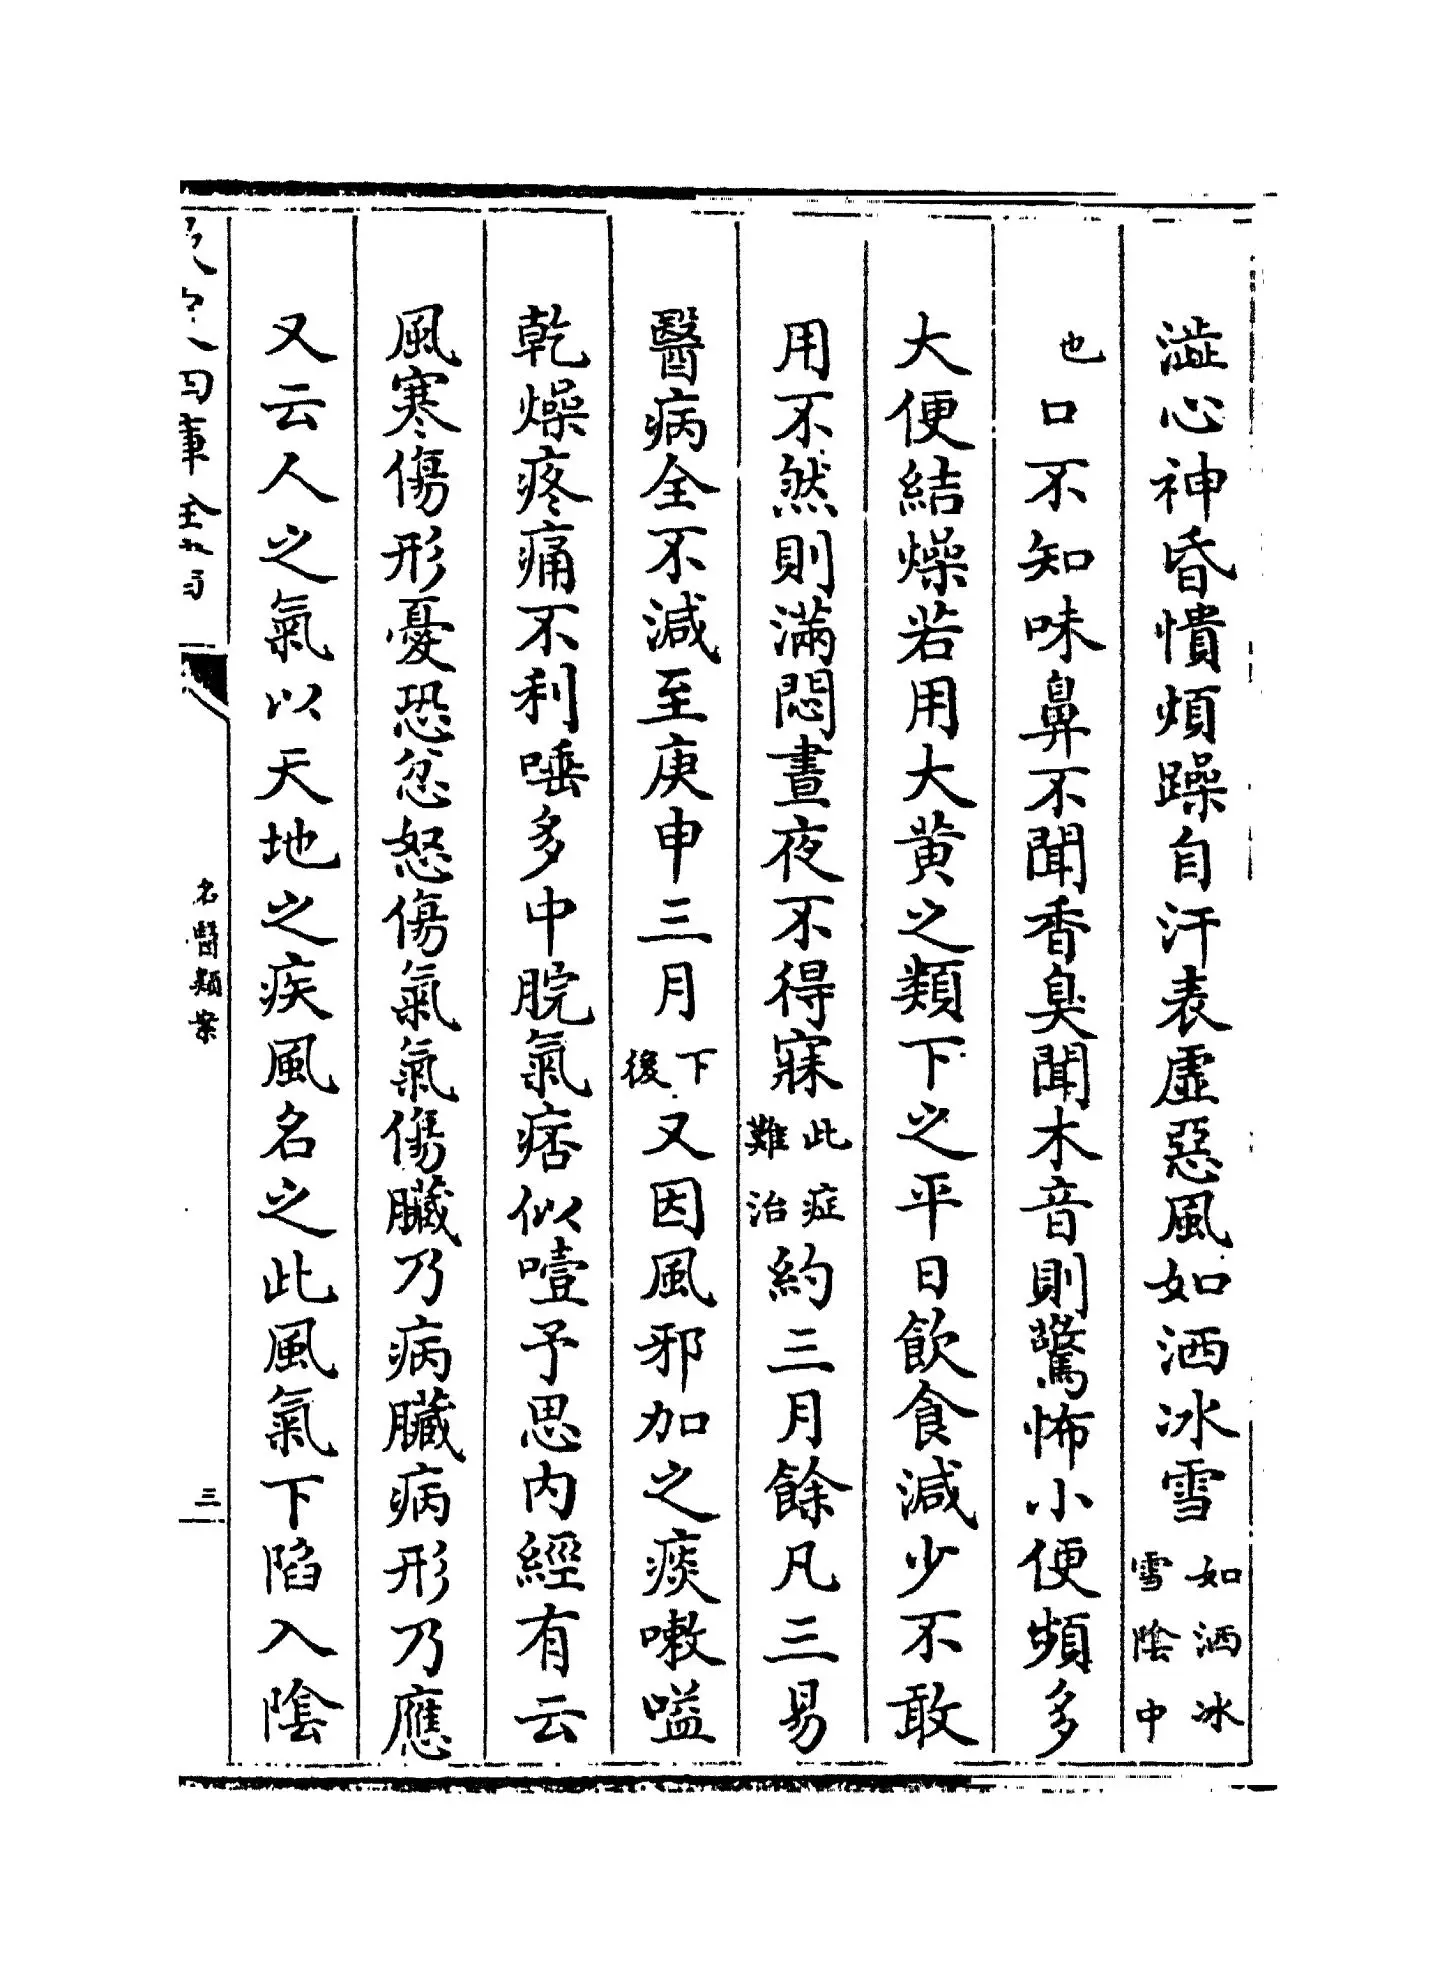 澁心神昏憒煩躁自汗表虛惡風如洒冰雪如洒冰雪陰中
也口不知味鼻不聞香臭聞木音則驚怖小便頻多
大便結燥若用大黄之類下之平日飲食減少不敢
用不然則滿悶晝夜不得寐此症難治約三月餘凡三易
醫病全不減至庚申三月下後又因風邪加之痰嗽嗌
乾燥疼痛不利唾多中脘氣痞似噎予思内經有云
風寒傷形憂恐忿怒傷氣氣傷臟乃病臟病形乃應
又云人之氣以天地之疾風名之此風氣下陷入陰
四庫全書
名醫類案
三